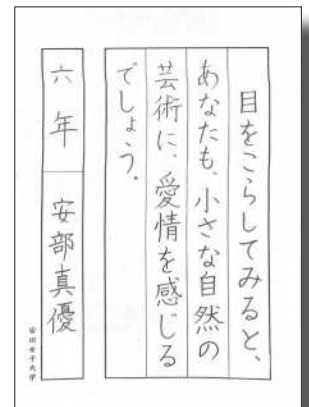 目をこらしてみると、
あなたも、小さな自然の
芸術に、愛情を感じる
でしょう。
六年 安部真優
安田女子大学